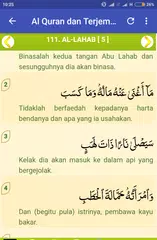 10:22
Al Quran dan Terjem
111. AL-LAHAB [ 5 ]
Binasalah kedua tangan Abu Lahab dan
sesungguhnya dia akan binasa.
2
مَا أَغْنَىٰ عَنْهُ مَالُهُ وَمَا كَسَبَ
Tidaklah berfaedah kepadanya harta
bendanya dan apa yang ia usahakan.
3
سَيَصْلَىٰ نَارًا ذَاتَ لَهَبٍ
Kelak dia akan masuk ke dalam api yang
bergejolak.
4
وَامْرَأَتُهُ حَمَّالَةَ الْحَطَبِ
Dan (begitu pula) istrinya, pembawa kayu
bakar.